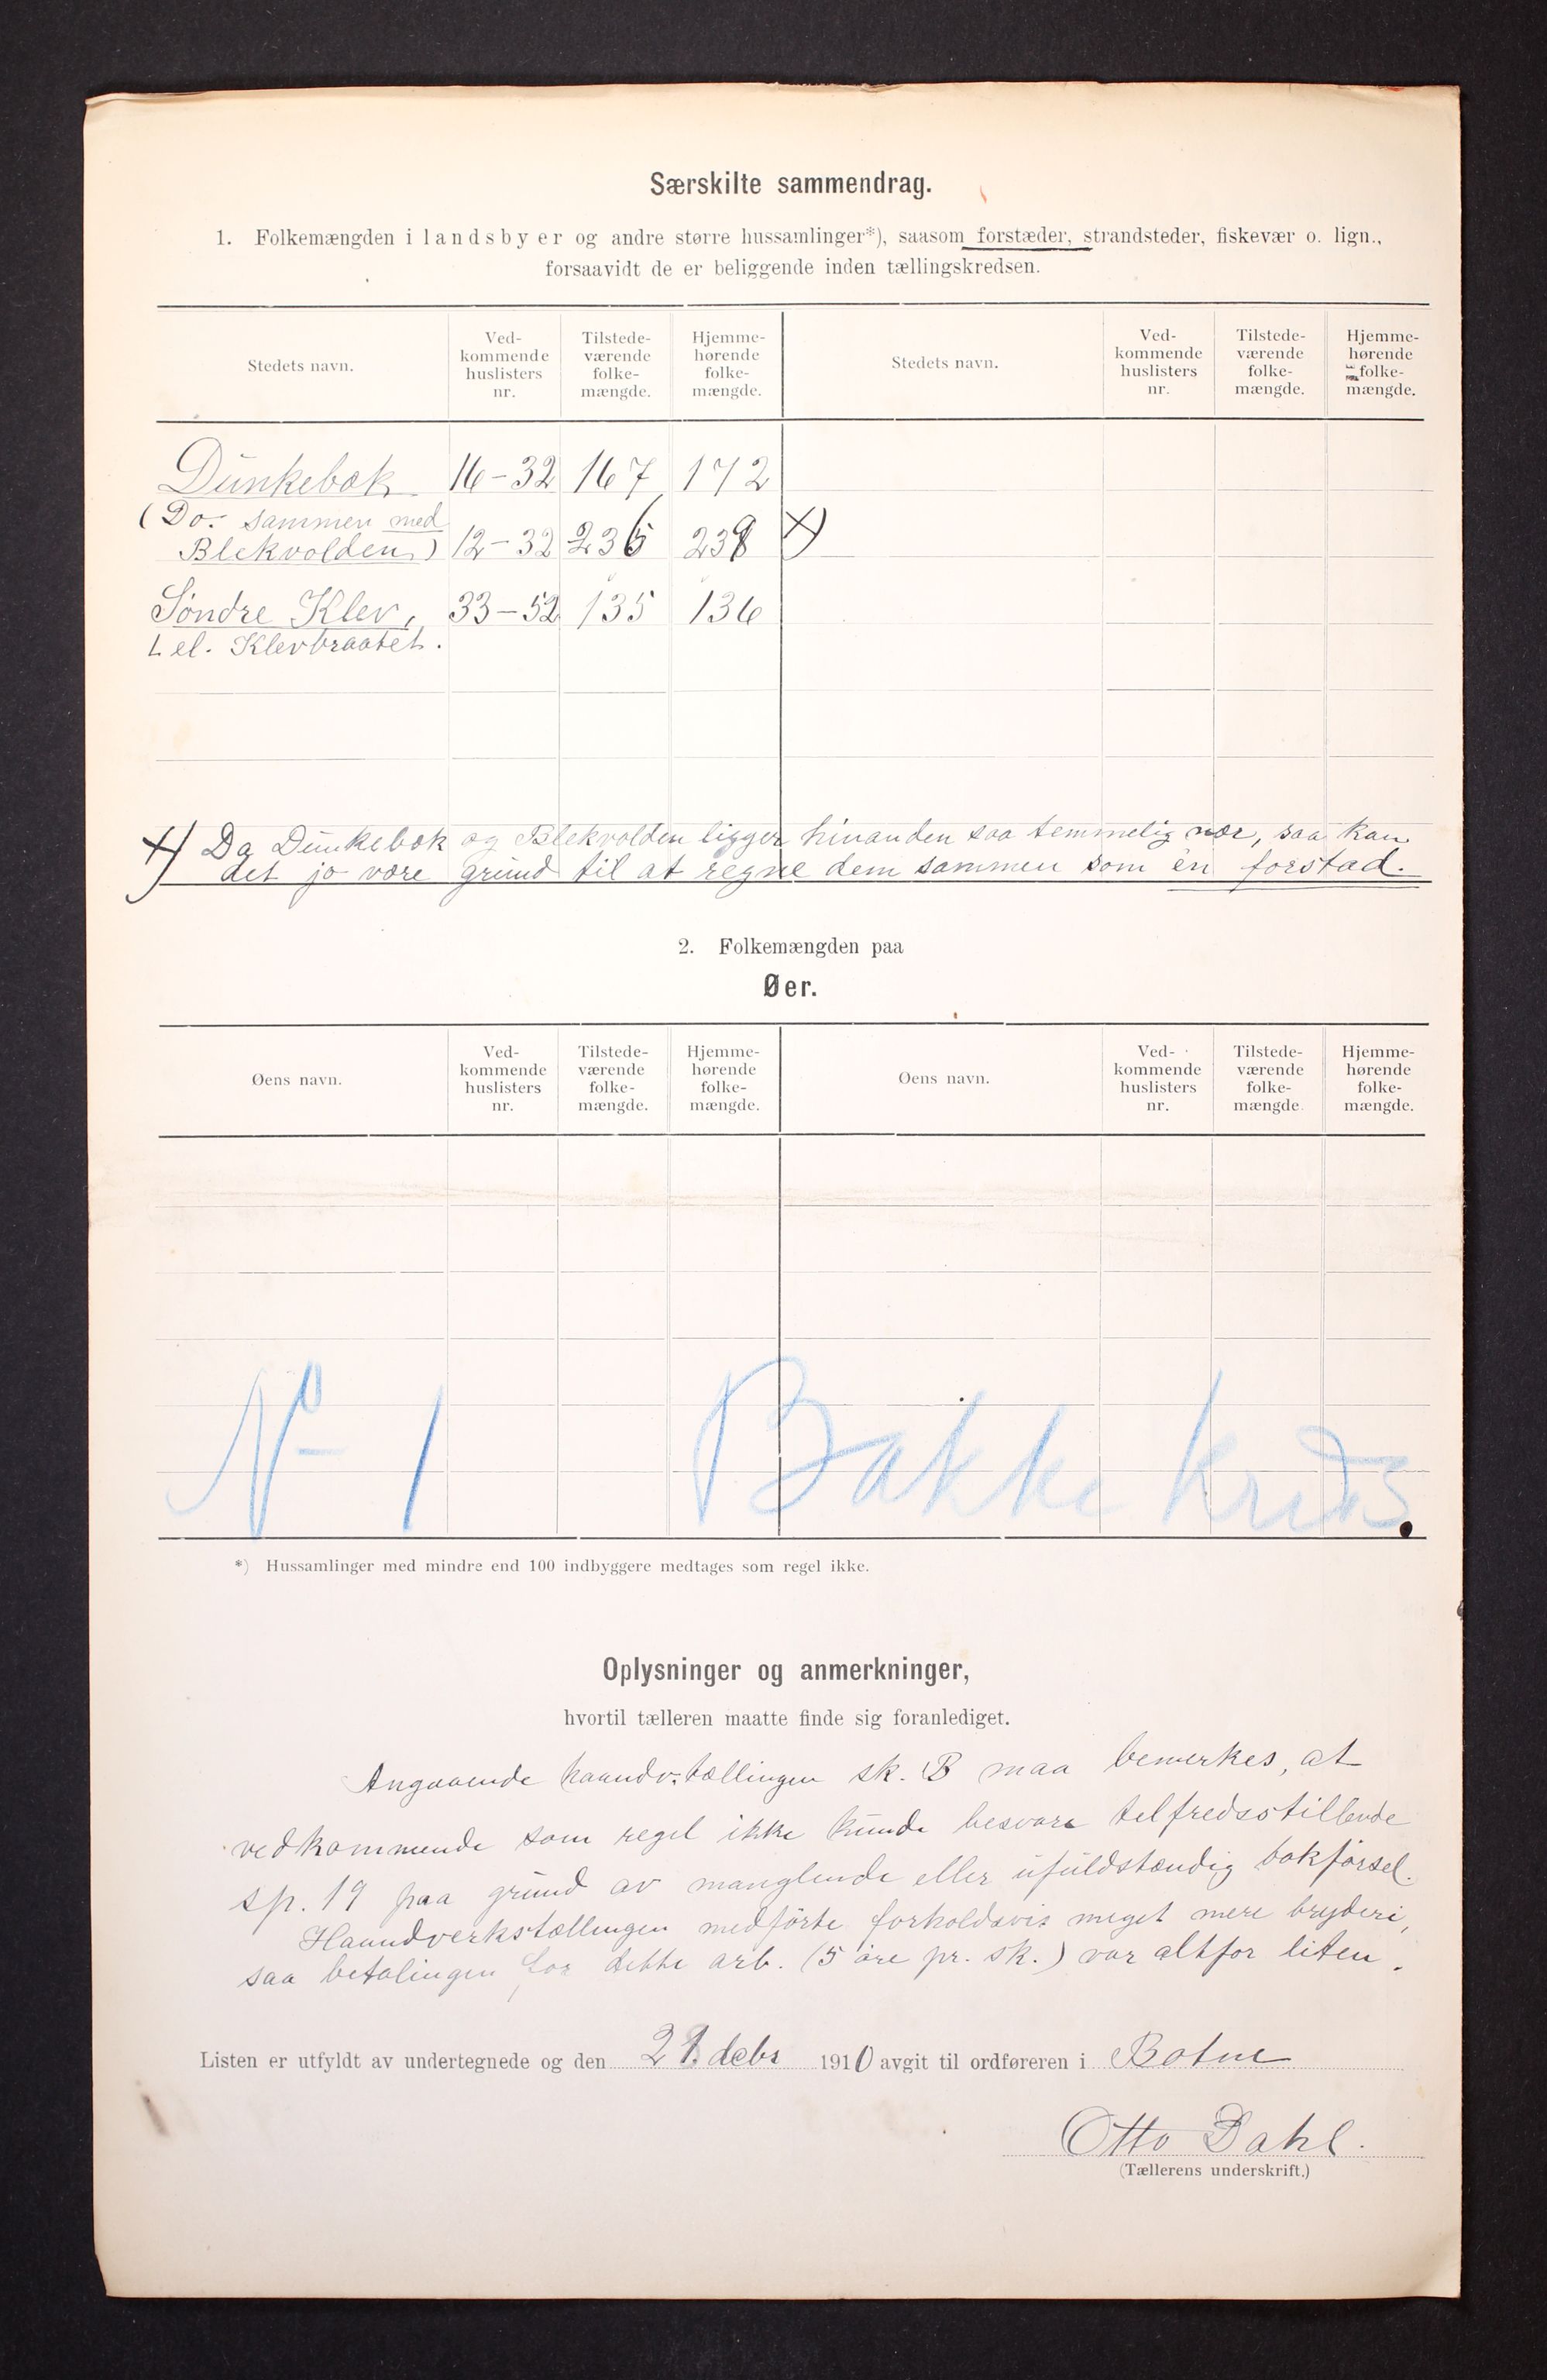 Særskilte sammendrag.
1. Folkemængden i landsbyer og andre større hussamlinger*), saasom forstæder, strandsteder, fiskevær o. lign.,
forsaavidt de er beliggende inden tællingskredsen.
Stedets navn. Ved-kommende huslisters nr. Tilstede-værende folke-mængde. Hjemme-hørende folke-mængde. Stedets navn. Ved-kommende huslisters nr. Tilstede-værende folke-mængde. Hjemme-hørende folke-mængde.
Dunkebæk 16-32 167 172
(Do. sammen med
Blekvolden) 12-32 236 239 X)
Söndre Klev, 33-52 135 136
L el. Klevbraatet.
X) Da Dunkebæk og Blekvolden ligger hinanden saa temmelig nær, saa kan
det jo være grund til at regne dem sammen som én forstad.
2. Folkemængden paa
Øer.
Øens navn. Ved-kommende huslisters nr. Tilstede-værende folke-mængde. Hjemme-hørende folke-mængde. Øens navn. Ved-kommende huslisters nr. Tilstede-værende folke-mængde Hjemme-hørende folke-mængde.
No 1 Bakke Kreds.
*) Hussamlinger med mindre end 100 indbyggere medtages som regel ikke.
Oplysninger og anmerkninger,
hvortil tælleren maatte finde sig foranlediget.
Angaaende haandv.tællingen sk. B maa bemerkes, at
vedkommende som regel ikke kunde besvare tilfredsstillende
sp. 19 paa grund av manglende eller ufuldstændig bokförsel.
Haandverkstællingen medförte forholdsvis meget mere bryderi,
saa betalingen for dette arb. (5 öre pr. sk.) var altfor liten.
Listen er utfyldt av undertegnede og den 21. debr 1910 avgit til ordføreren i Botne
Otto Dahl.
(Tællerens underskrift.)